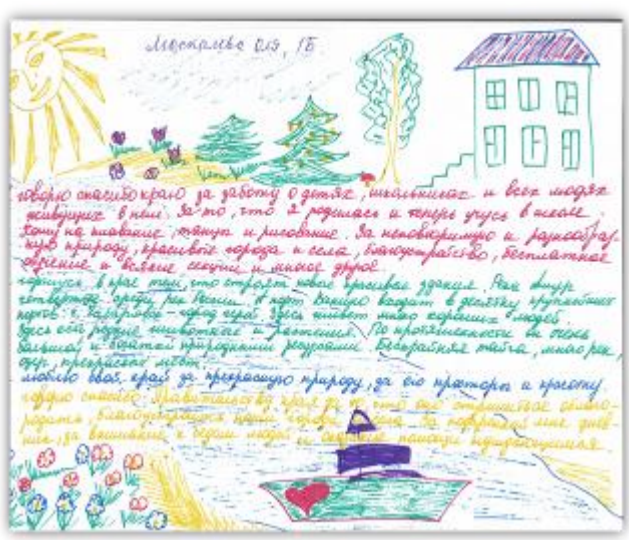 Москалева Оля, 1Б
говорю спасибо краю за заботу о детях, школьниках и всех людях
живущих в нем. За то, что я родилась и теперь учусь в школе,
хожу на плавание, танцы и рисование. За неповторимую и разнообраз-
ную природу, красивые города и села, благоустройство, бесплатное
обучение и всякие секции и многое другое.
горжусь в крае тем, что строят новые красивые здания. Река Амур
четвертая среди рек России. А порт Ванино входит в десятку крупнейших
портов. г. Хабаровск - город герой. Здесь живет много хороших людей.
Здесь есть редкие животные и растения. По протяженности он очень
большой и богатый природными ресурсами. Бескрайняя тайга, много рек,
озер, прекрасных мест.
люблю свой край за прекрасную природу, за его просторы и красоту.
говорю спасибо Правительству края за то, что оно стремится облаго-
родить, благоустроить наши города и села. За подарок мне днев-
ник, за внимание к людям и оказание помощи нуждающимся.